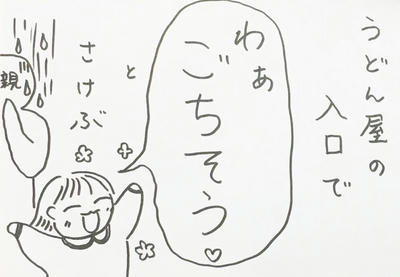 うどん屋の
入口で
わぁ
ごちそう♡
と
さけぶ
親